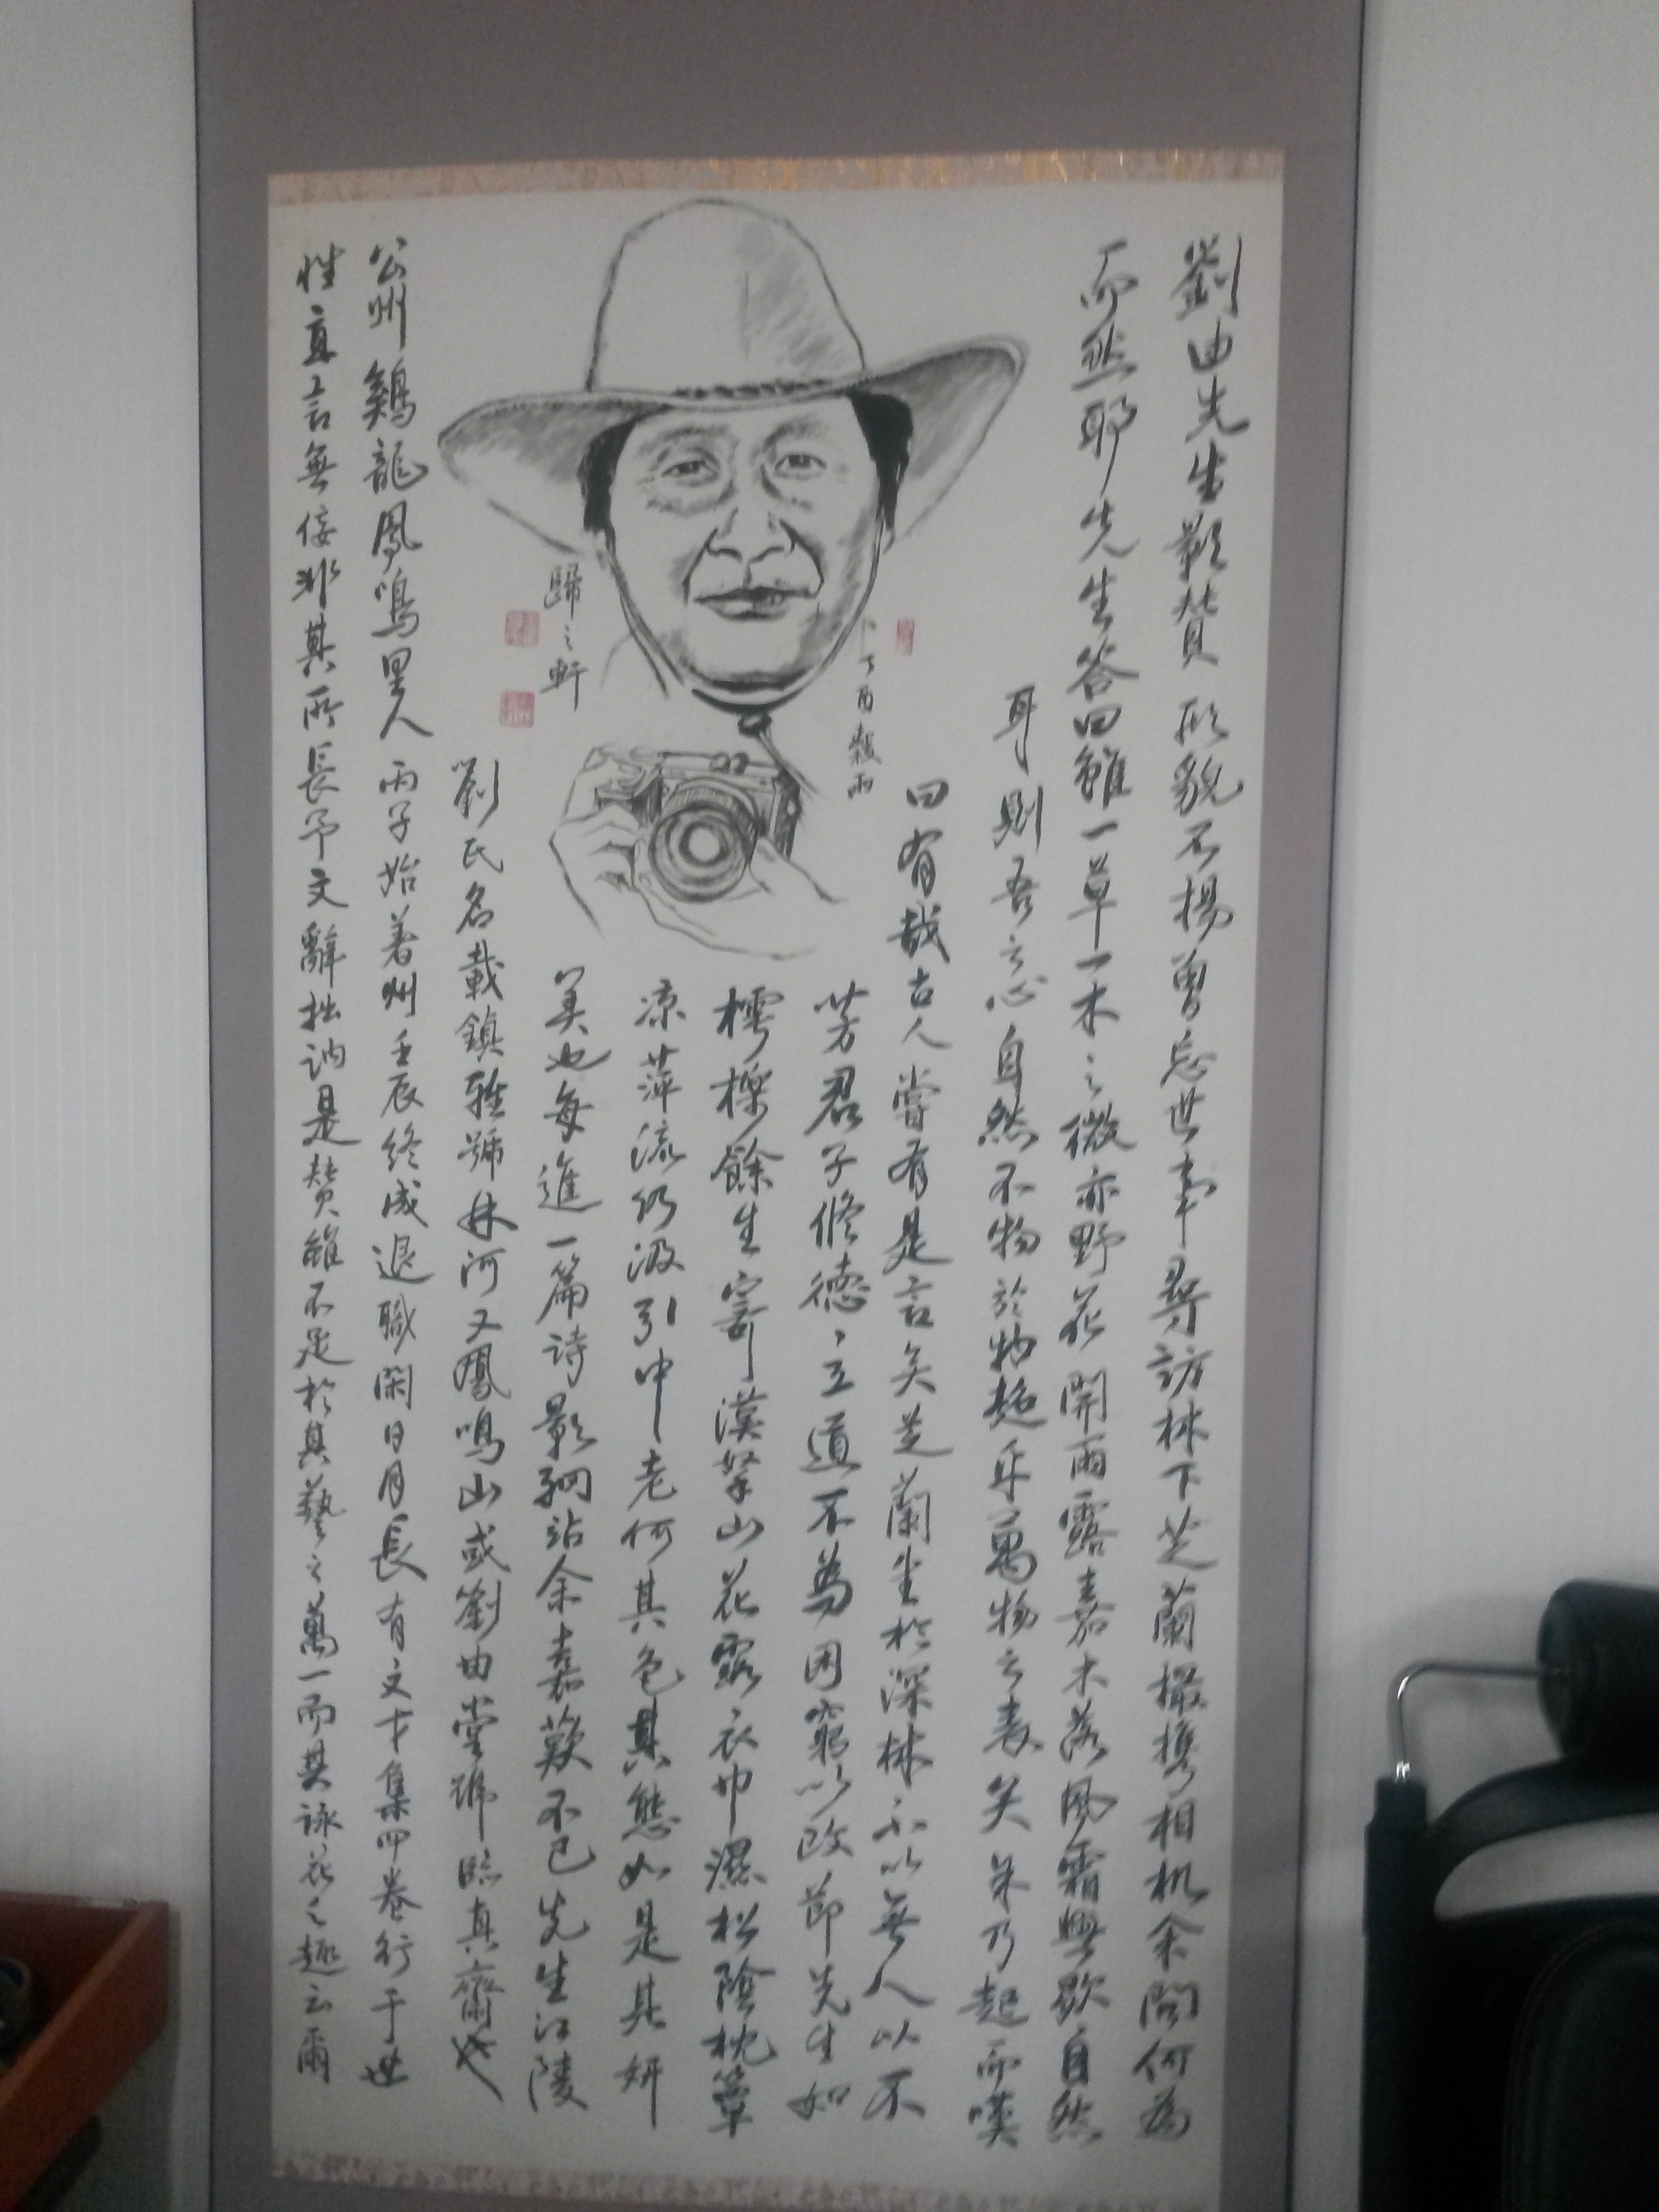 劉由先生影賛 形貌不揚 曾忘世事 尋訪林下芝蘭 撮攜相机 余問何為
而然耶 先生答曰 雖一草一木之微 亦野花開雨露 嘉木落風霜 興歇自然
耳 則吾之心自然不物於物 超乎萬物之表矣 朱乃起而嘆
曰 有哉 古人嘗有是言矣 芝蘭生於深林 不以無人以不
芳 君子修德立道 不為困窮以改節 先生如
樗櫟餘生寄漢拏 山花露衣巾濕 松陰枕簟
凉 萍流仍汲引 中老何其色其態如是其妍
美也 每進一篇詩影網站 余嘉歎不已 先生江陵
劉氏 名載鎮 雅號林河 又鳳鳴山 或劉由 堂號臨真齋也
公州鷄龍鳳鳴里人 丙子始着州 壬辰終成退職 閑日月長 有文才集四卷行于世
性直言無佞 非其所長 予文辭拙訥 是賛雖不足於其藝之萬一 而其詠花之趣云爾
丁酉穀雨
歸之軒